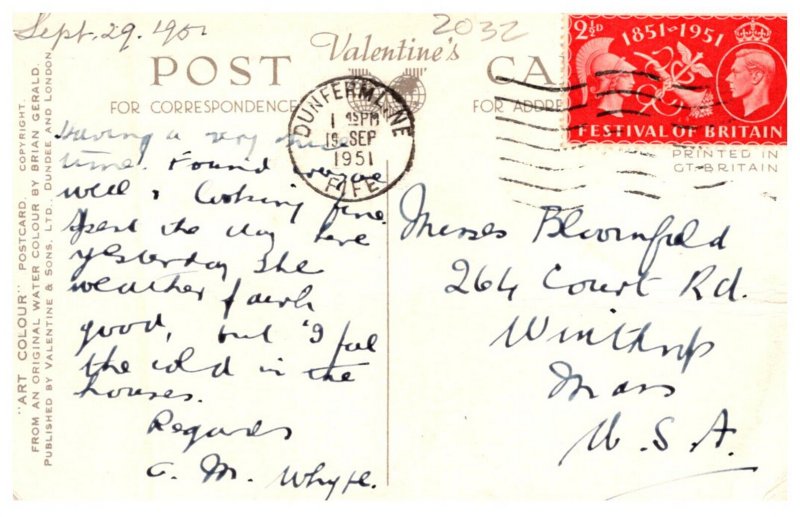 Sept. 29. 1951
2032
Valentine's
POST CA
FOR CORRESPONDENCE
FOR ADDRE
"ART COLOUR" POSTCARD. COPYRIGHT.
FROM AN ORIGINAL WATER COLOUR BY BRIAN GERALD.
PUBLISHED BY VALENTINE & SONS, LTD., DUNDEE AND LONDON
DUNFERMLINE
PM
19 SEP
1951
FIFE
2½D 1851-1951
FESTIVAL OF BRITAIN
PRINTED IN
GT. BRITAIN
Having a very nice
time. Found
well & looking fine.
Spent the day here
yesterday. The
weather fairly
good, but I feel
the cold in the
houses.
Regards
C. M. Whyte.
Misses Bloomfield
264 Court Rd.
Winthrop
Mass
U. S. A.